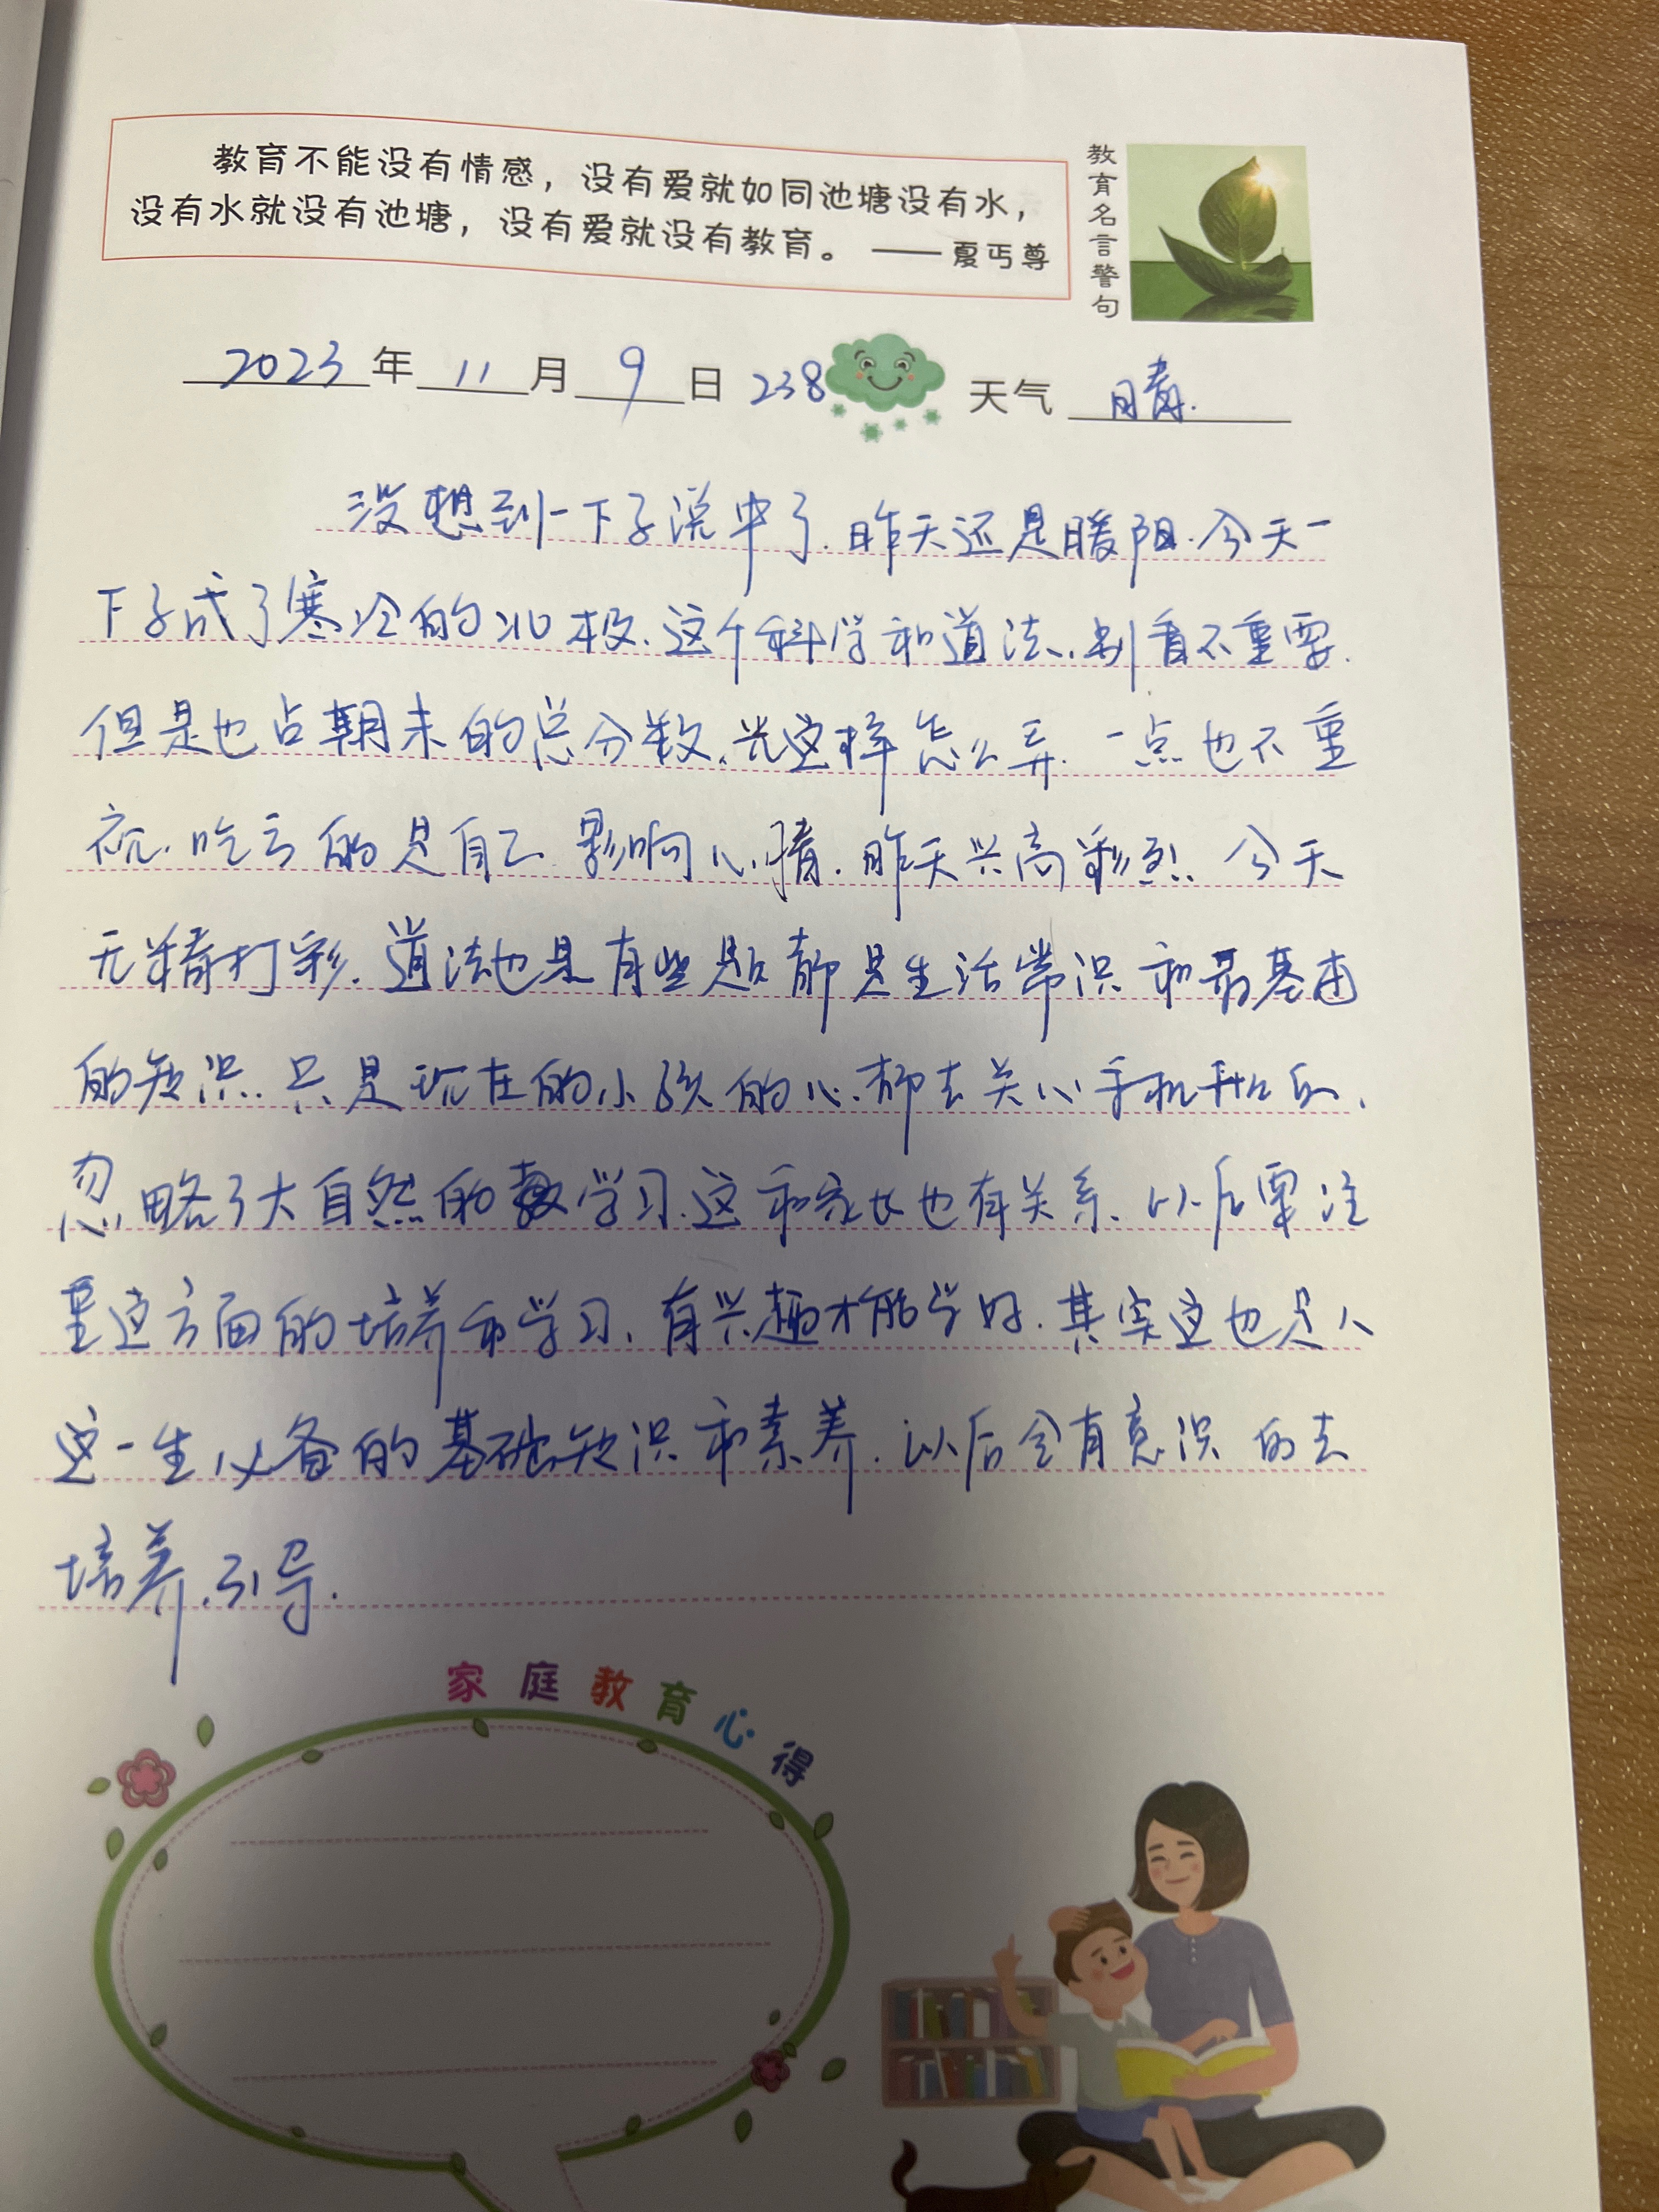 教育不能没有情感，没有爱就如同池塘没有水，
没有水就没有池塘，没有爱就没有教育。 —— 夏丏尊
教育名言警句
2023年11月9日 238 天气 晴.
没想到一下子说中了.昨天还是暖阳.今天一
下子成了寒冷的北极.这个科学和道法.别看不重要.
但是也占期末的总分数.光这样怎么弄.一点也不重
视.吃亏的是自己.影响心情.昨天兴高彩烈.今天
无精打彩.道法也是有些题都是生活常识和最基本
的知识.只是现在的小孩的心.都去关心手机
忽略了大自然的学习.这和家长也有关系.以后要注
重这方面的培养和学习.有兴趣才能学好.其实这也是人
这一生必备的基础知识和素养.以后会有意识的去
培养.引导.
家庭教育心得